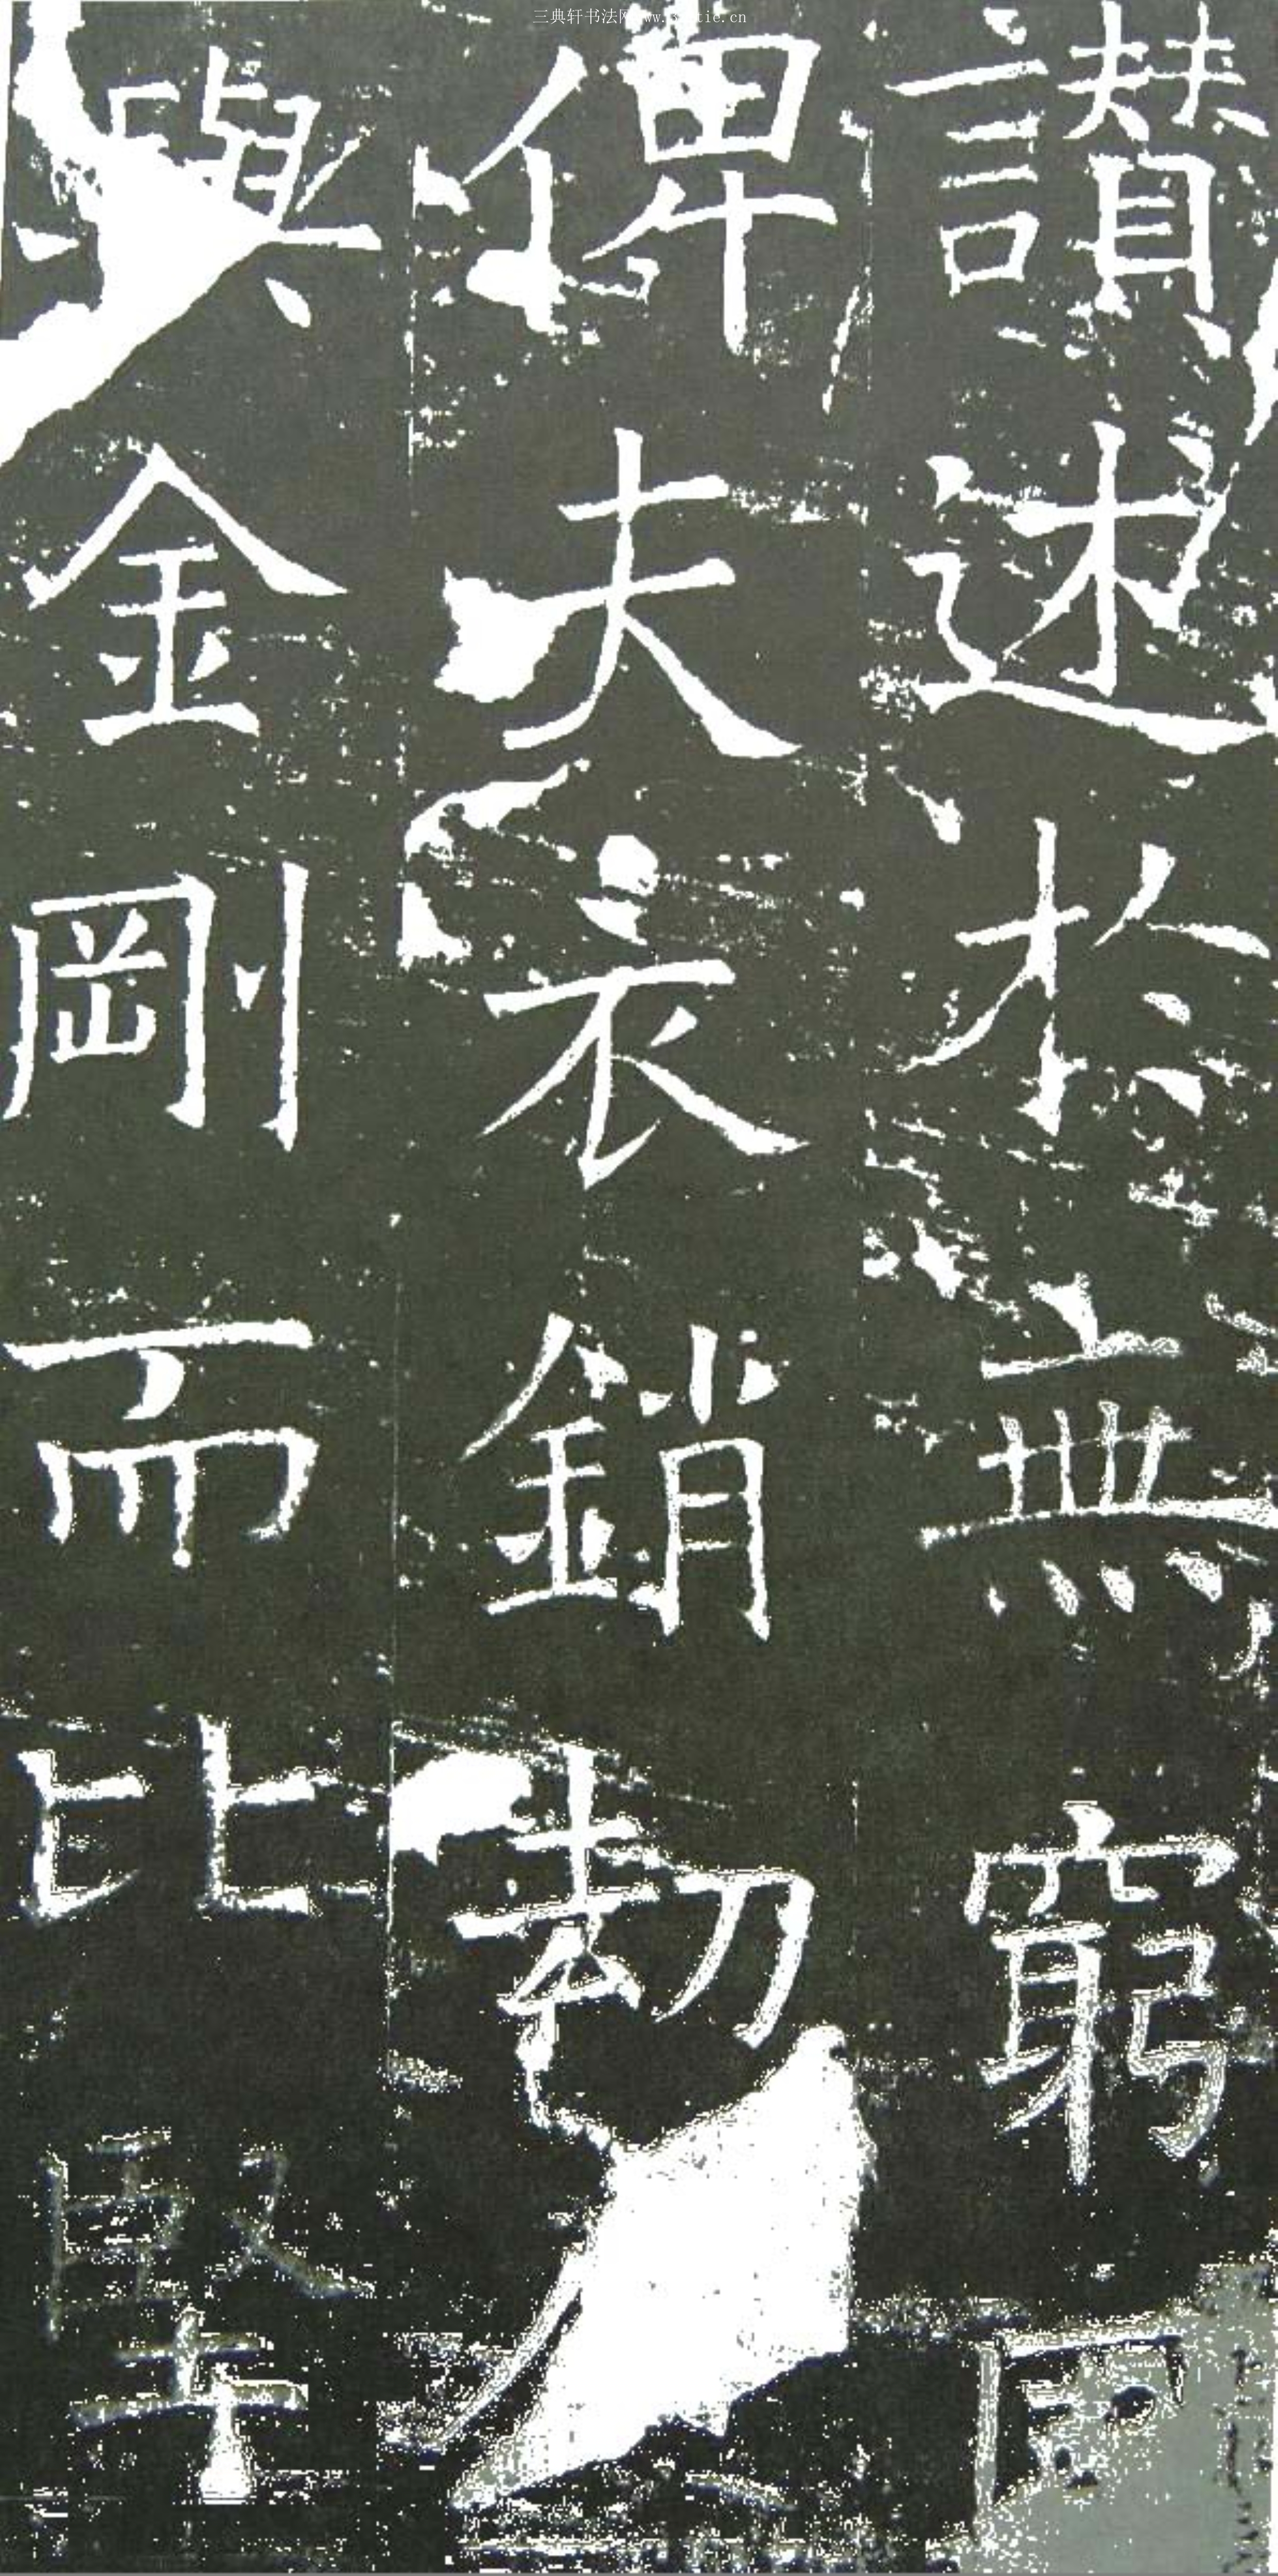 三典轩书法网
讃述於無窮
俾夫衣銷劫
與金剛而比堅